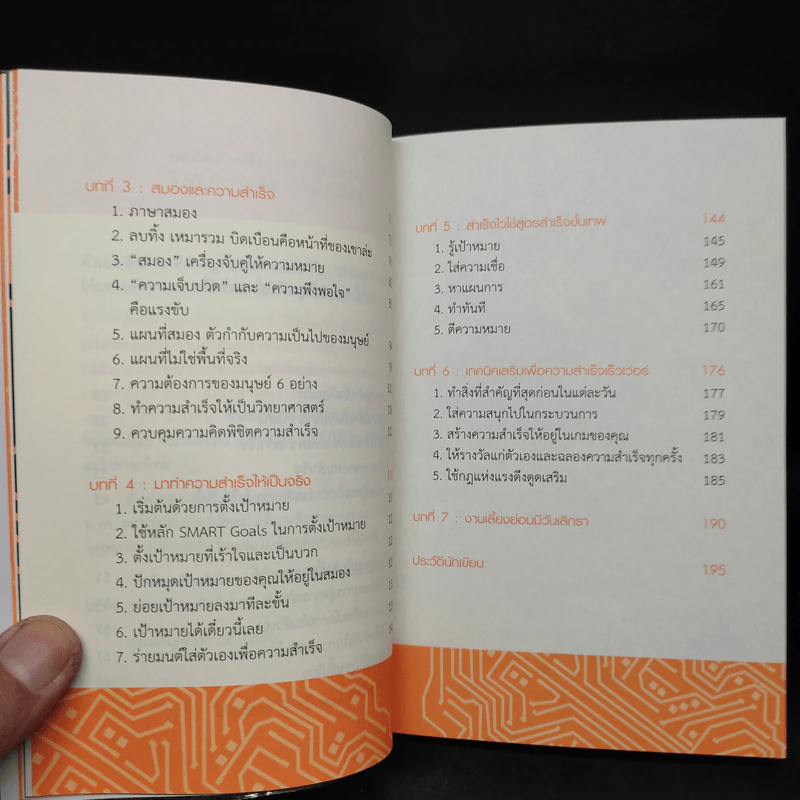 บทที่ 3 : สมองและความสำเร็จ
1. ภาษาสมอง
2. ลบทิ้ง เหมารวม บิดเบือนคือหน้าที่ของเขาล่ะ
3. “สมอง” เครื่องจับคู่ให้ความหมาย
4. “ความเจ็บปวด” และ “ความพึงพอใจ”
คือแรงขับ
5. แผนที่สมอง ตัวกำกับความเป็นไปของมนุษย์
6. แผนที่ไม่ใช่พื้นที่จริง
7. ความต้องการของมนุษย์ 6 อย่าง
8. ทำความสำเร็จให้เป็นวิทยาศาสตร์
9. ควบคุมความคิดพิชิตความสำเร็จ
บทที่ 4 : มาทำความสำเร็จให้เป็นจริง
1. เริ่มต้นด้วยการตั้งเป้าหมาย
2. ใช้หลัก SMART Goals ในการตั้งเป้าหมาย
3. ตั้งเป้าหมายที่เร้าใจและเป็นบวก
4. ปักหมุดเป้าหมายของคุณให้อยู่ในสมอง
5. ย่อยเป้าหมายลงมาทีละขั้น
6. เป้าหมายได้เดี๋ยวนี้เลย
7. ร่ายมนต์ใส่ตัวเองเพื่อความสำเร็จ
บทที่ 5 : สำเร็จไวใช้สูตรสำเร็จขั้นเทพ 144
1. รู้เป้าหมาย 145
2. ใส่ความเชื่อ 149
3. หาแผนการ 161
4. ทำทันที 165
5. ตีความหมาย 170
บทที่ 6 : เทคนิคเสริมเพื่อความสำเร็จเร็วเว่อร์ 176
1. ทำสิ่งที่สำคัญที่สุดก่อนในแต่ละวัน 177
2. ใส่ความสนุกไปในกระบวนการ 179
3. สร้างความสำเร็จให้อยู่ในเกมของคุณ 181
4. ให้รางวัลแก่ตัวเองและฉลองความสำเร็จทุกครั้ง 183
5. ใช้กฎแห่งแรงดึงดูดเสริม 185
บทที่ 7 : งานเลี้ยงย่อมมีวันเลิกรา 190
ประวัตินักเขียน 195